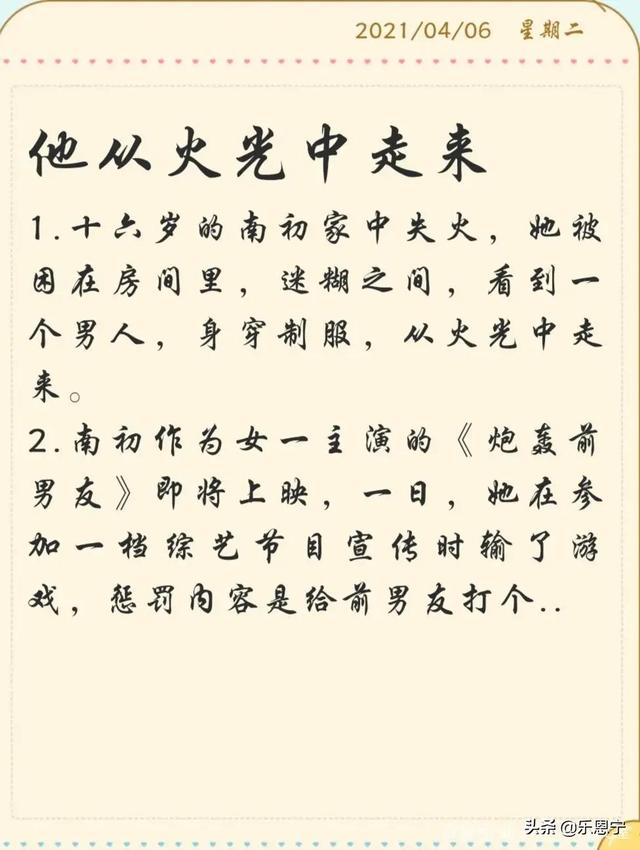 2021/04/06 星期二
他从火光中走来
1.十六岁的南初家中失火，她被
困在房间里，迷糊之间，看到一
个男人，身穿制服，从火光中走
来。
2.南初作为女一主演的《炮轰前
男友》即将上映，一日，她在参
加一档综艺节目宣传时输了游
戏，惩罚内容是给前男友打个..
头条 @乐恩宁